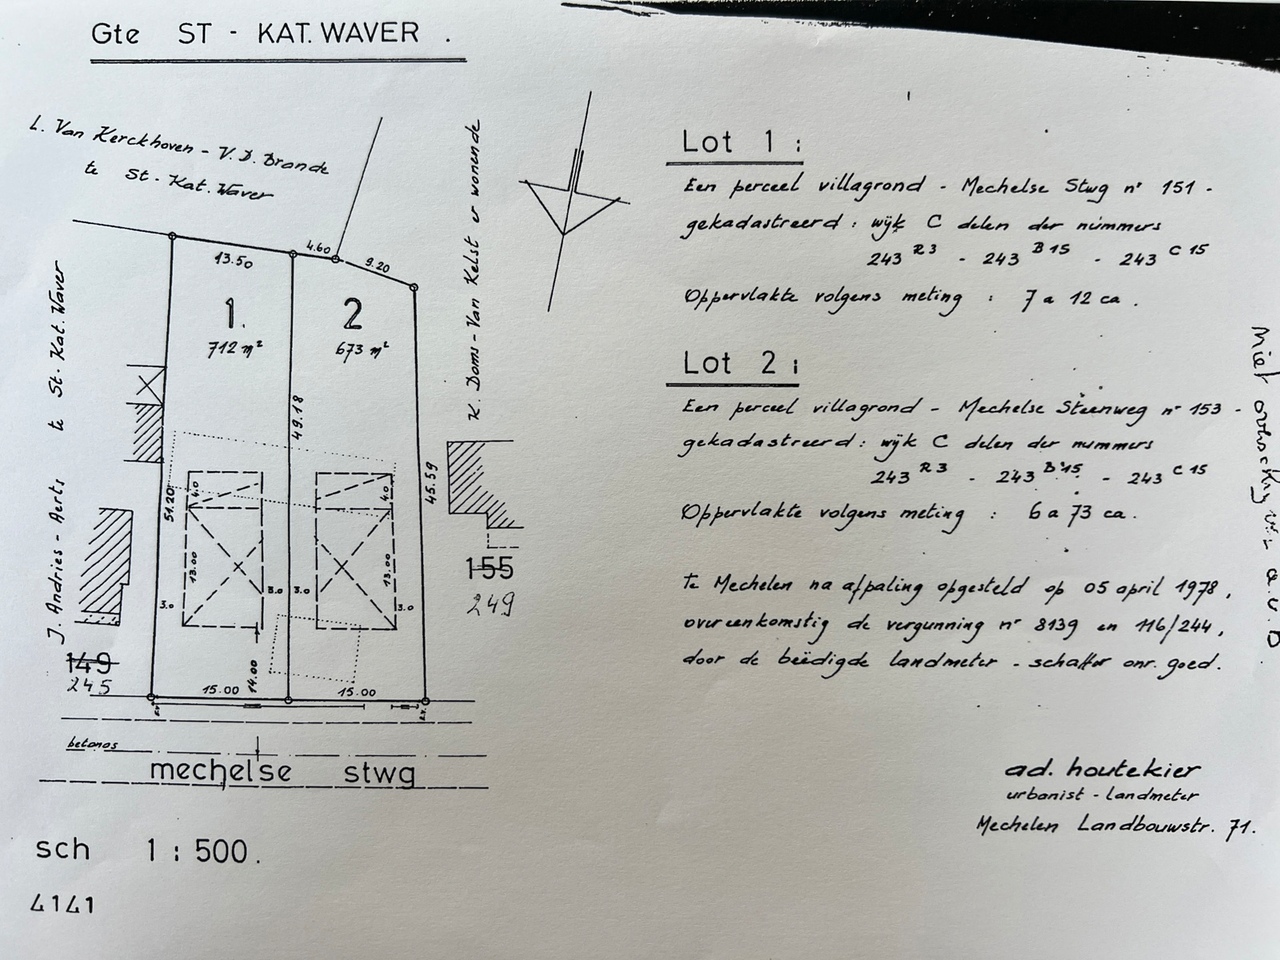 Gte ST - KAT. WAVER .
L. Van Kerckhoven - V.D. Brande
te St. Kat. Waver
K. Doms - Van Kelst er wonende
J. Andries - Aerts te St. Kat. Waver
4.60
13.50
9.20
1.
2
712 m²
673 m²
49.18
51.20
45.59
4.0
4.0
13.00
13.00
3.0
3.0
3.0
3.0
155
249
149
245
14.00
15.00
15.00
betonas
mechelse stwg
sch 1 : 500.
4141
Lot 1 :
Een perceel villagrond - Mechelse Stwg n° 151 -
gekadastreerd : wijk C delen der nummers
243 R3 - 243 B15 - 243 C15
Oppervlakte volgens meting : 7 a 12 ca .
Lot 2 :
Een perceel villagrond - Mechelse Steenweg n° 153 -
gekadastreerd : wijk C delen der nummers
243 R3 - 243 B15 - 243 C15
Oppervlakte volgens meting : 6 a 73 ca .
te Mechelen na afpaling opgesteld op 05 april 1978 ,
overeenkomstig de vergunning n° 8139 en 116/244 ,
door de beëdigde landmeter - schatter onr. goed.
ad. houtekier
urbanist - landmeter
Mechelen Landbouwstr. 71.
Niet